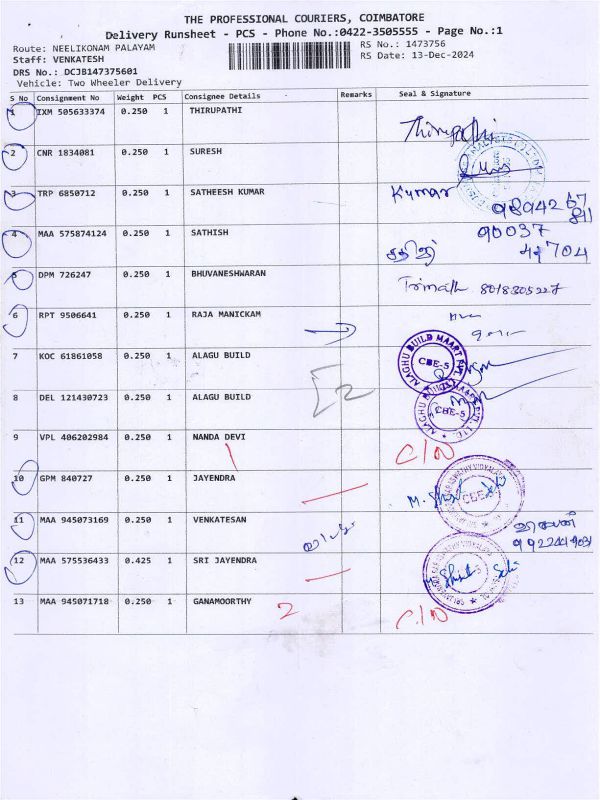 THE PROFESSIONAL COURIERS, COIMBATORE
Delivery Runsheet - PCS - Phone No.:0422-3505555 - Page No.:1
Route: NEELIKONAM PALAYAM RS No.: 1473756
Staff: VENKATESH RS Date: 13-Dec-2024
DRS No.: DCJB147375601
Vehicle: Two Wheeler Delivery
S No Consignment No Weight PCS Consignee Details Remarks Seal & Signature
1 IXM 505633374 0.250 1 THIRUPATHI Thirupathi
2 CNR 1834081 0.250 1 SURESH
3 TRP 6850712 0.250 1 SATHEESH KUMAR Kumar
4 MAA 575874124 0.250 1 SATHISH 90037
5 DPM 726247 0.250 1 BHUVANESHWARAN 8018305227
6 RPT 9506641 0.250 1 RAJA MANICKAM
7 KOC 61861058 0.250 1 ALAGU BUILD CBE-5
8 DEL 121430723 0.250 1 ALAGU BUILD 2 CBE-5
9 VPL 406202984 0.250 1 NANDA DEVI 1 C/N
10 GPM 840727 0.250 1 JAYENDRA
11 MAA 945073169 0.250 1 VENKATESAN
12 MAA 575536433 0.425 1 SRI JAYENDRA
13 MAA 945071718 0.250 1 GANAMOORTHY 2 C/N